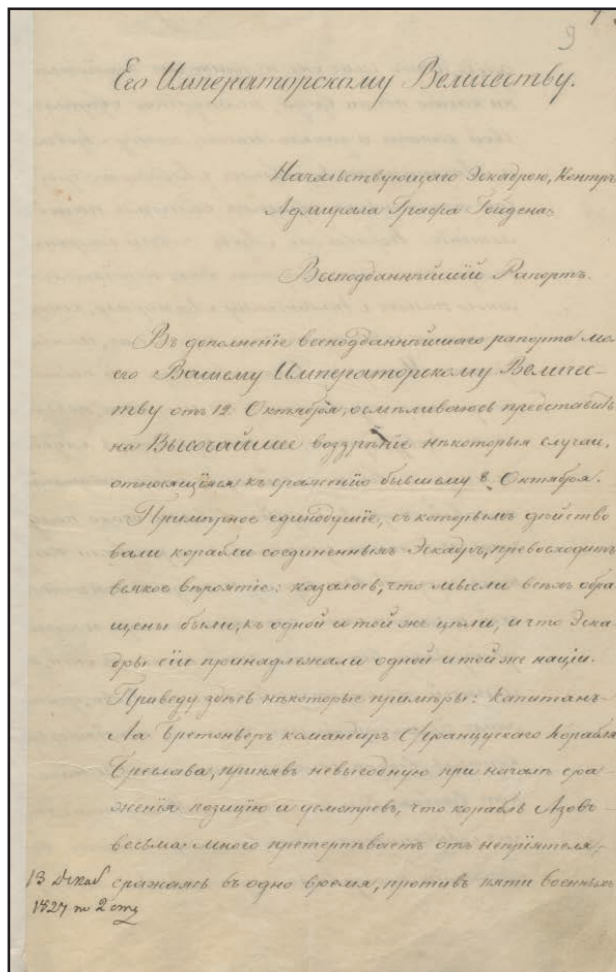 9
Его Императорскому Величеству.
Начальствующаго Эскадрою, Контръ
Адмирала Графа Гейдена
Всеподданнѣйшій Рапортъ.
Въ дополненіе всеподданнѣйшаго рапорта мо-
его Вашему Императорскому Величес-
тву отъ 12 Октября, осмѣливаюсь представить
на Высочайшее воззрѣніе нѣкоторыя случаи,
относящіяся къ сраженію бывшему 8 Октября.
Примѣрное единодушіе, съ которымъ дѣйство
вали корабли соединенныхъ Эскадръ, превосходитъ
всякое вѣроятіе: казалось, что мысли всѣхъ обра
щены были, къ одной и той же цѣли, и что Эска
дры сіи принадлежали одной и той же націи.
Приведу здѣсь нѣкоторые примѣры: Капитанъ
Ла Бретоньеръ командиръ Французскаго Корабля
Бреслава, принявъ невыгодную при началѣ сра-
женія позицію и усмотревъ, что корабль Азовъ
весьма много претерпѣваетъ отъ непріятеля,
сражаясь въ одно время, противъ пяти военныхъ
13 Декаб
1827 по 2